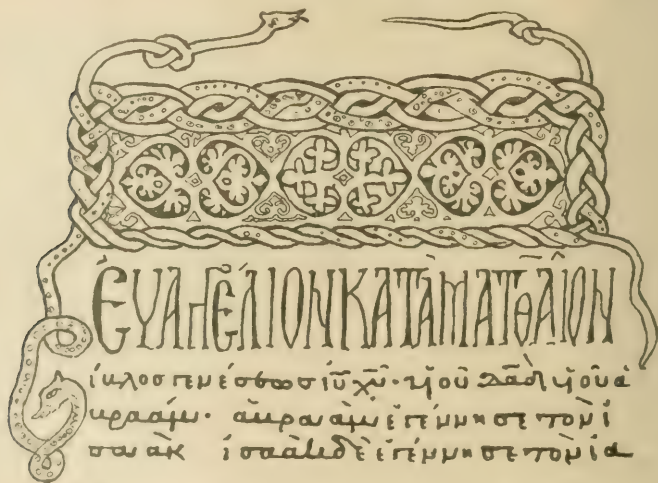 ΕΥΑΓΓΕΛΙΟΝ ΚΑΤΑ ΜΑΤΘΑΙΟΝ
Βίβλος γενέσεως ἰῦ χῦ· υἱοῦ δᾶδ υἱοῦ ἀ
βραάμ· ἀβραὰμ ἐγέννησε τὸν ἰ
σαάκ ἰσαὰκ δὲ ἐγέννησε τὸν ἰα